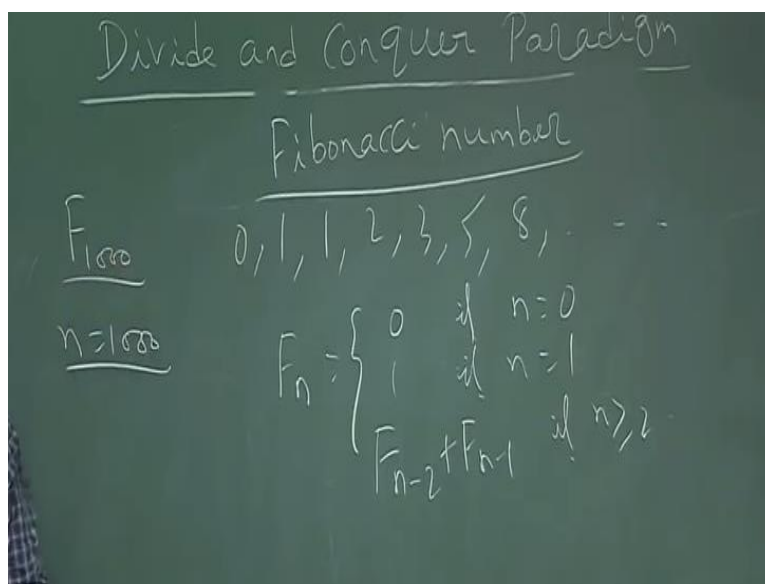 Divide and Conquer Paradigm
Fibonacci number
F₁₀₀₀ 0, 1, 1, 2, 3, 5, 8, . - -
n=1000
Fₙ = { 0 if n=0
1 if n=1
Fₙ₋₂+Fₙ₋₁ if n≥2.